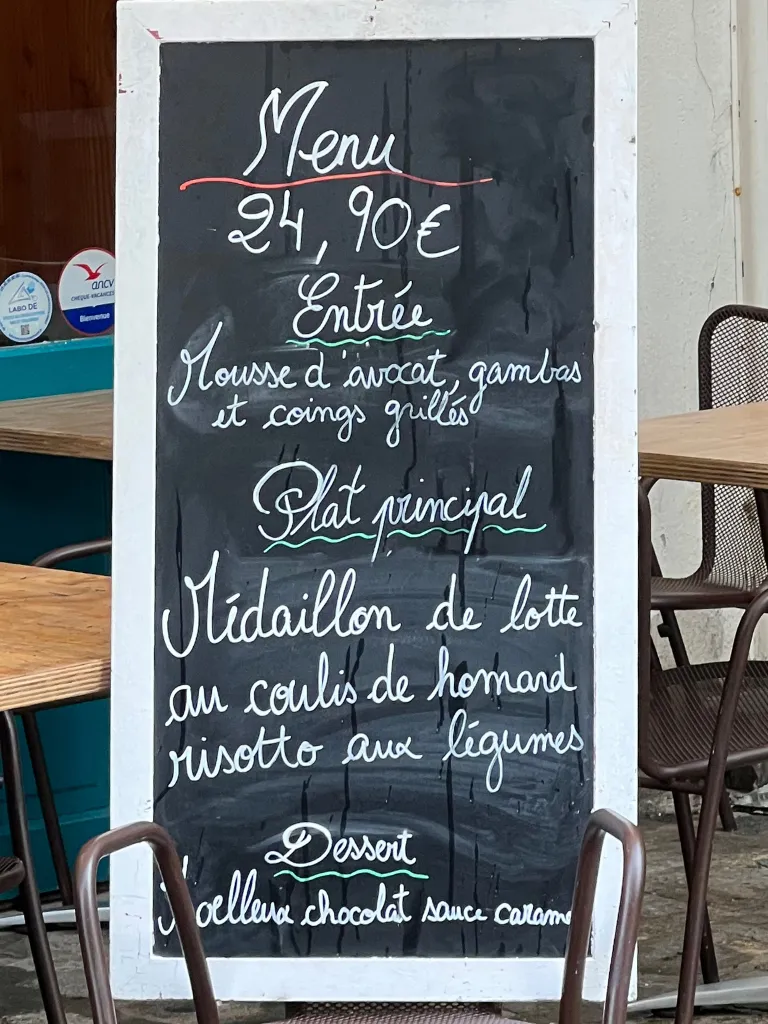 Menu
24,90€
Entrée
Mousse d'avocat, gambas
et coings grillés
Plat principal
Médaillon de lotte
au coulis de homard
risotto aux légumes
Dessert
Moelleux chocolat sauce caram
LABO DE
ancv
CHÈQUE-VACANCES
Bienvenue